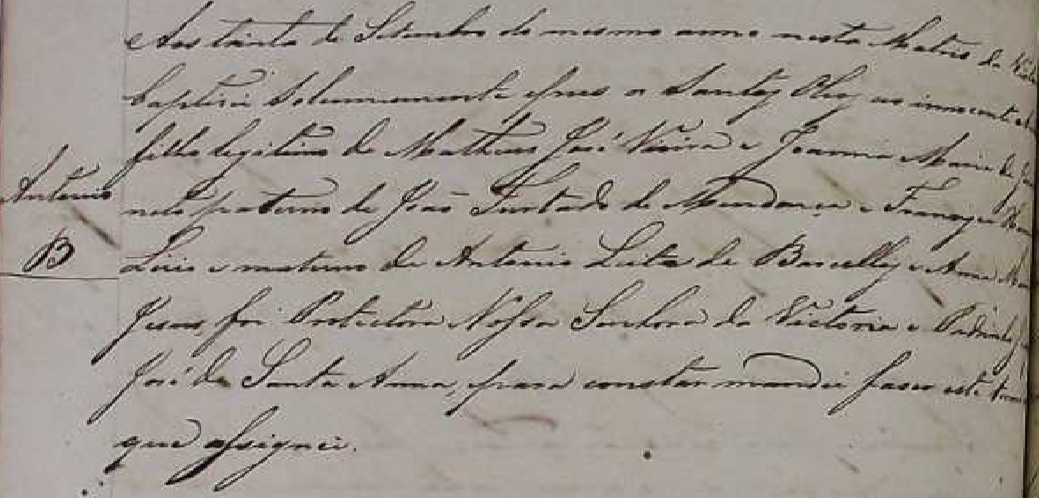 Aos trinta de Setembro do mesmo anno nesta Matriz da
baptizei Solemnemente e pus os Santos Oleos ao innocente
filho legitimo de Matheus José Vieira e Joanna Maria de
Antonio
neto paterno de João Furtado de Mendonça e Francisca
B
e materno de Antonio Leite de Barcellos e Anna
Jesus foi Protectora Nossa Senhora da Victoria e Padrinho
José de Santa Anna, e para constar mandei faser este
que assignei.